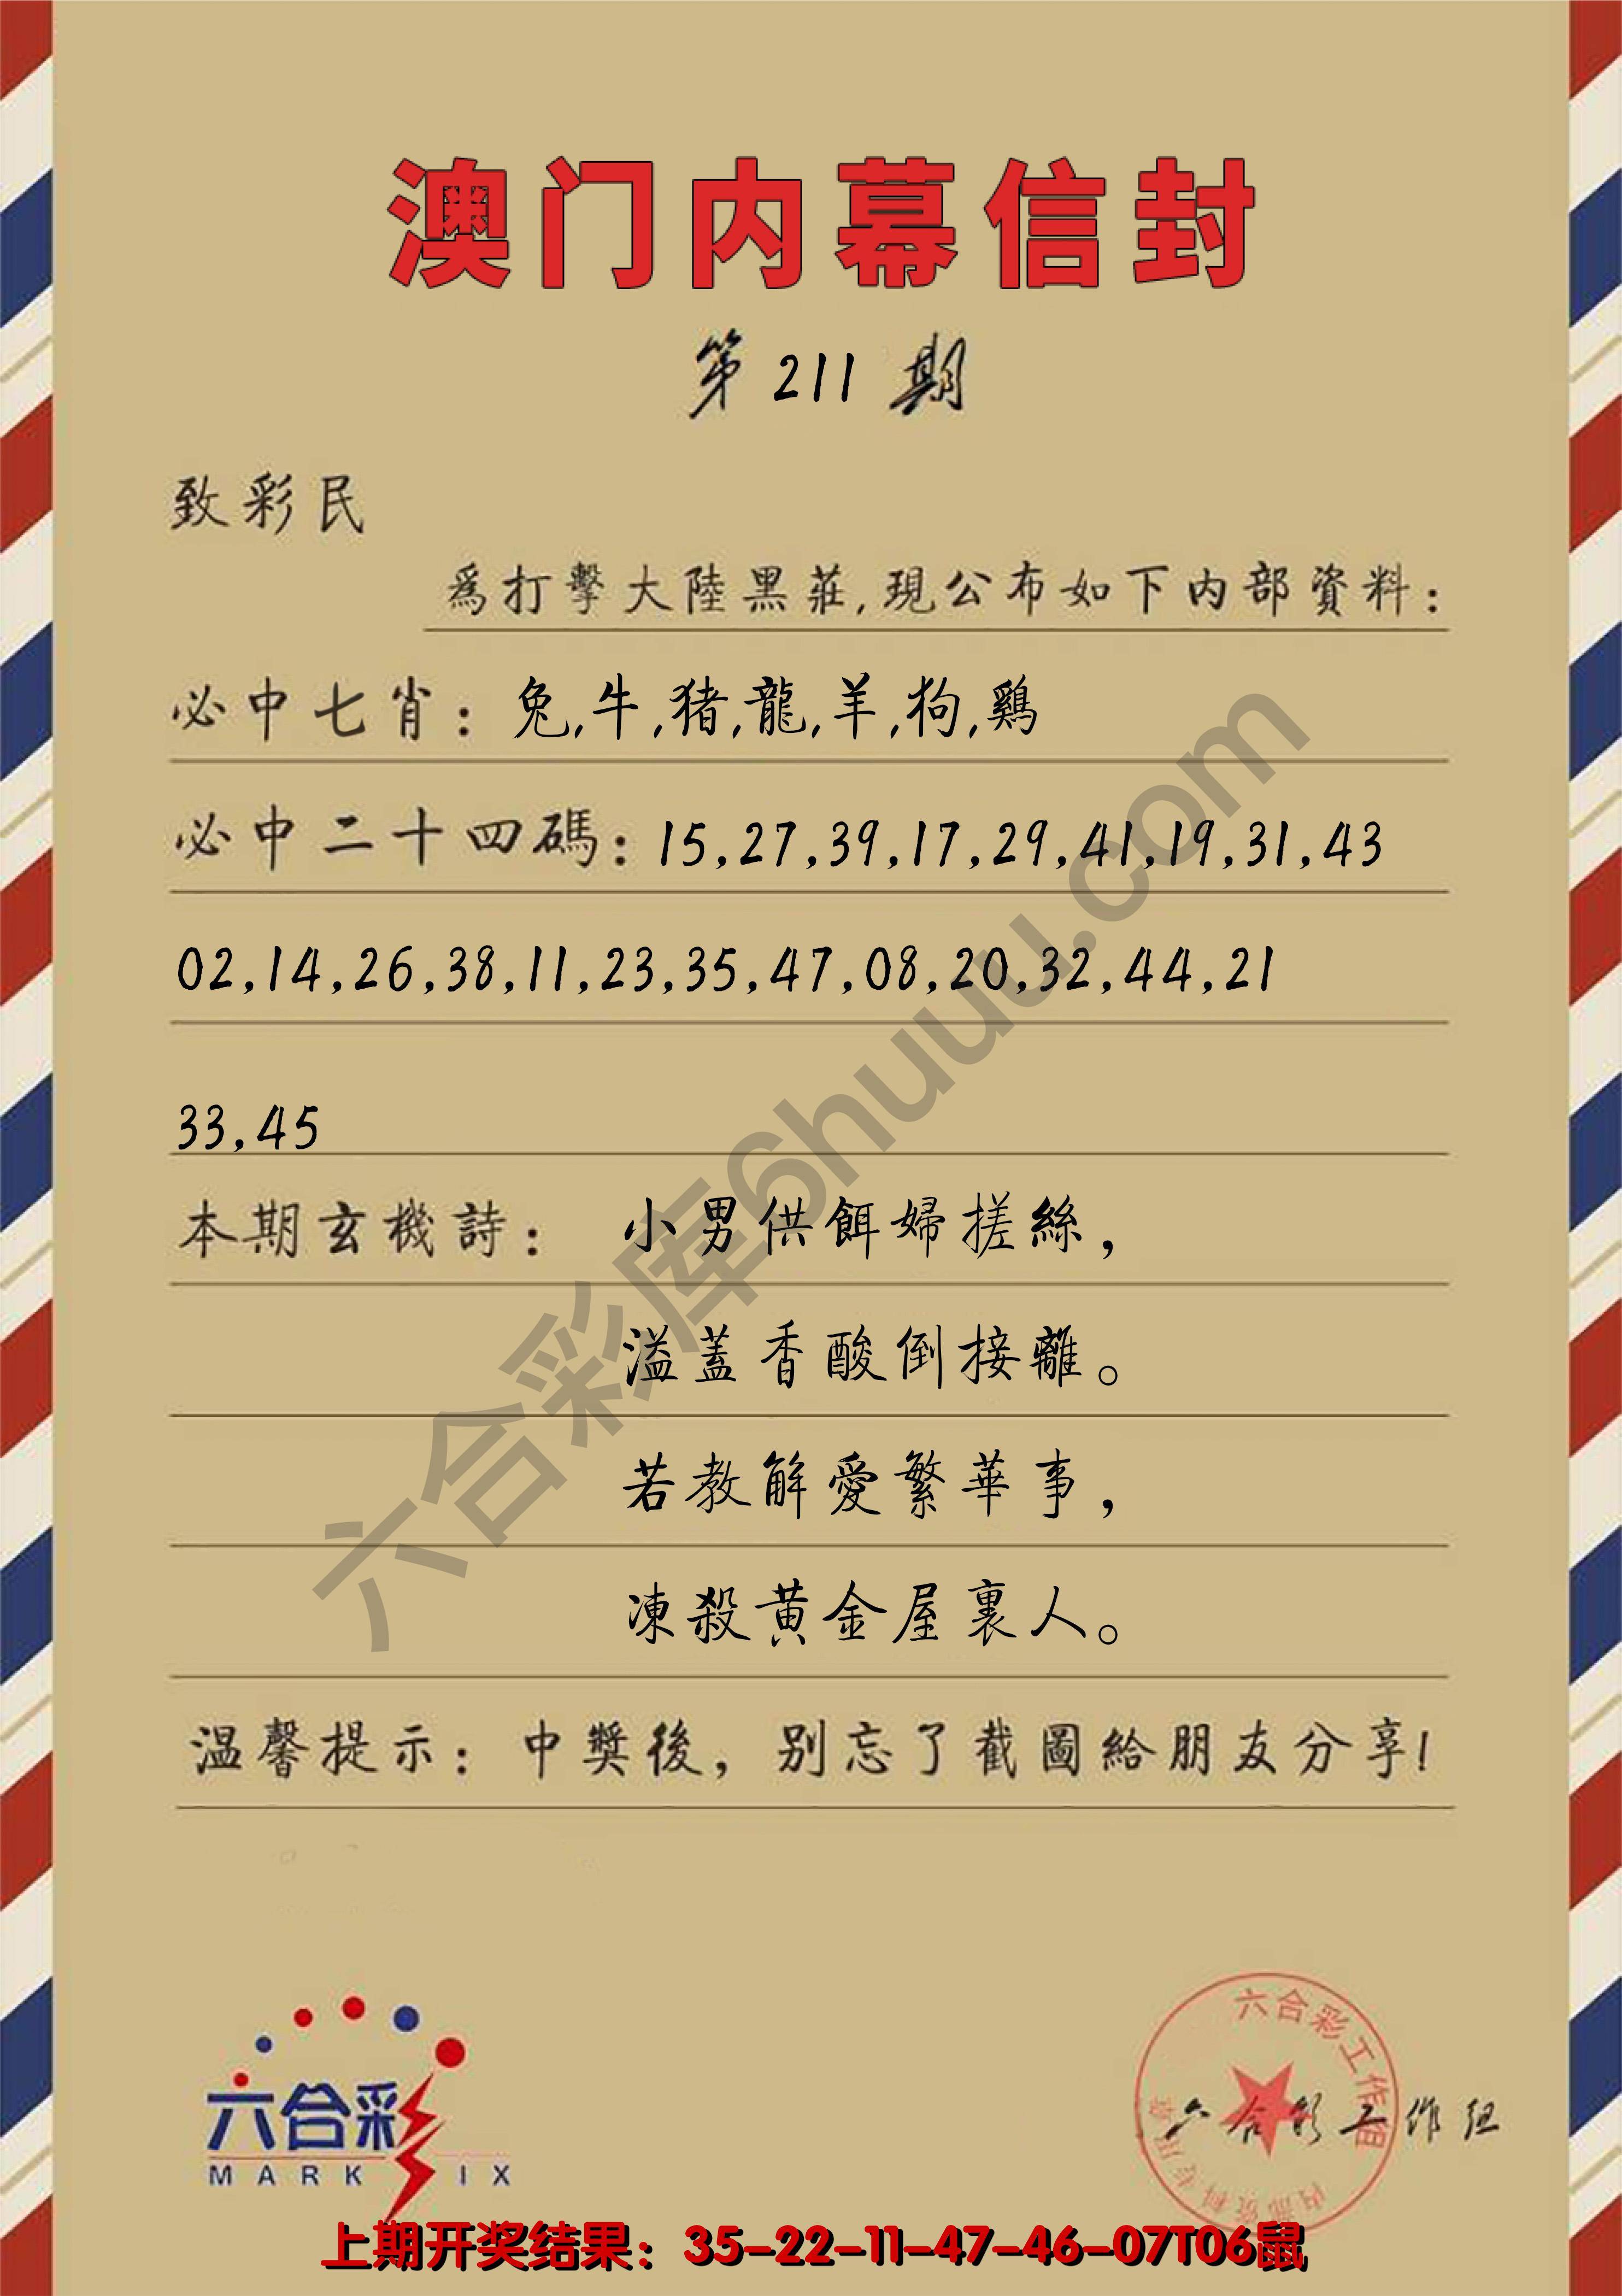 澳门内幕信封
第 211 期
致彩民
為打擊大陸黑莊,現公布如下内部資料:
必中七肖: 兔,牛,猪,龍,羊,狗,鷄
必中二十四碼: 15,27,39,17,29,41,19,31,43
02,14,26,38,11,23,35,47,08,20,32,44,21
33,45
本期玄機詩: 小男供餌婦搓絲,
溢蓋香酸倒接離。
若教解愛繁華事,
凍殺黄金屋裏人。
温馨提示: 中獎後, 别忘了截圖給朋友分享!
六合彩库6huuu.com
六合彩
MARK SIX
六合彩工作组
内部资料专用章
六合彩工作组
上期开奖结果: 35-22-11-47-46-07T06鼠